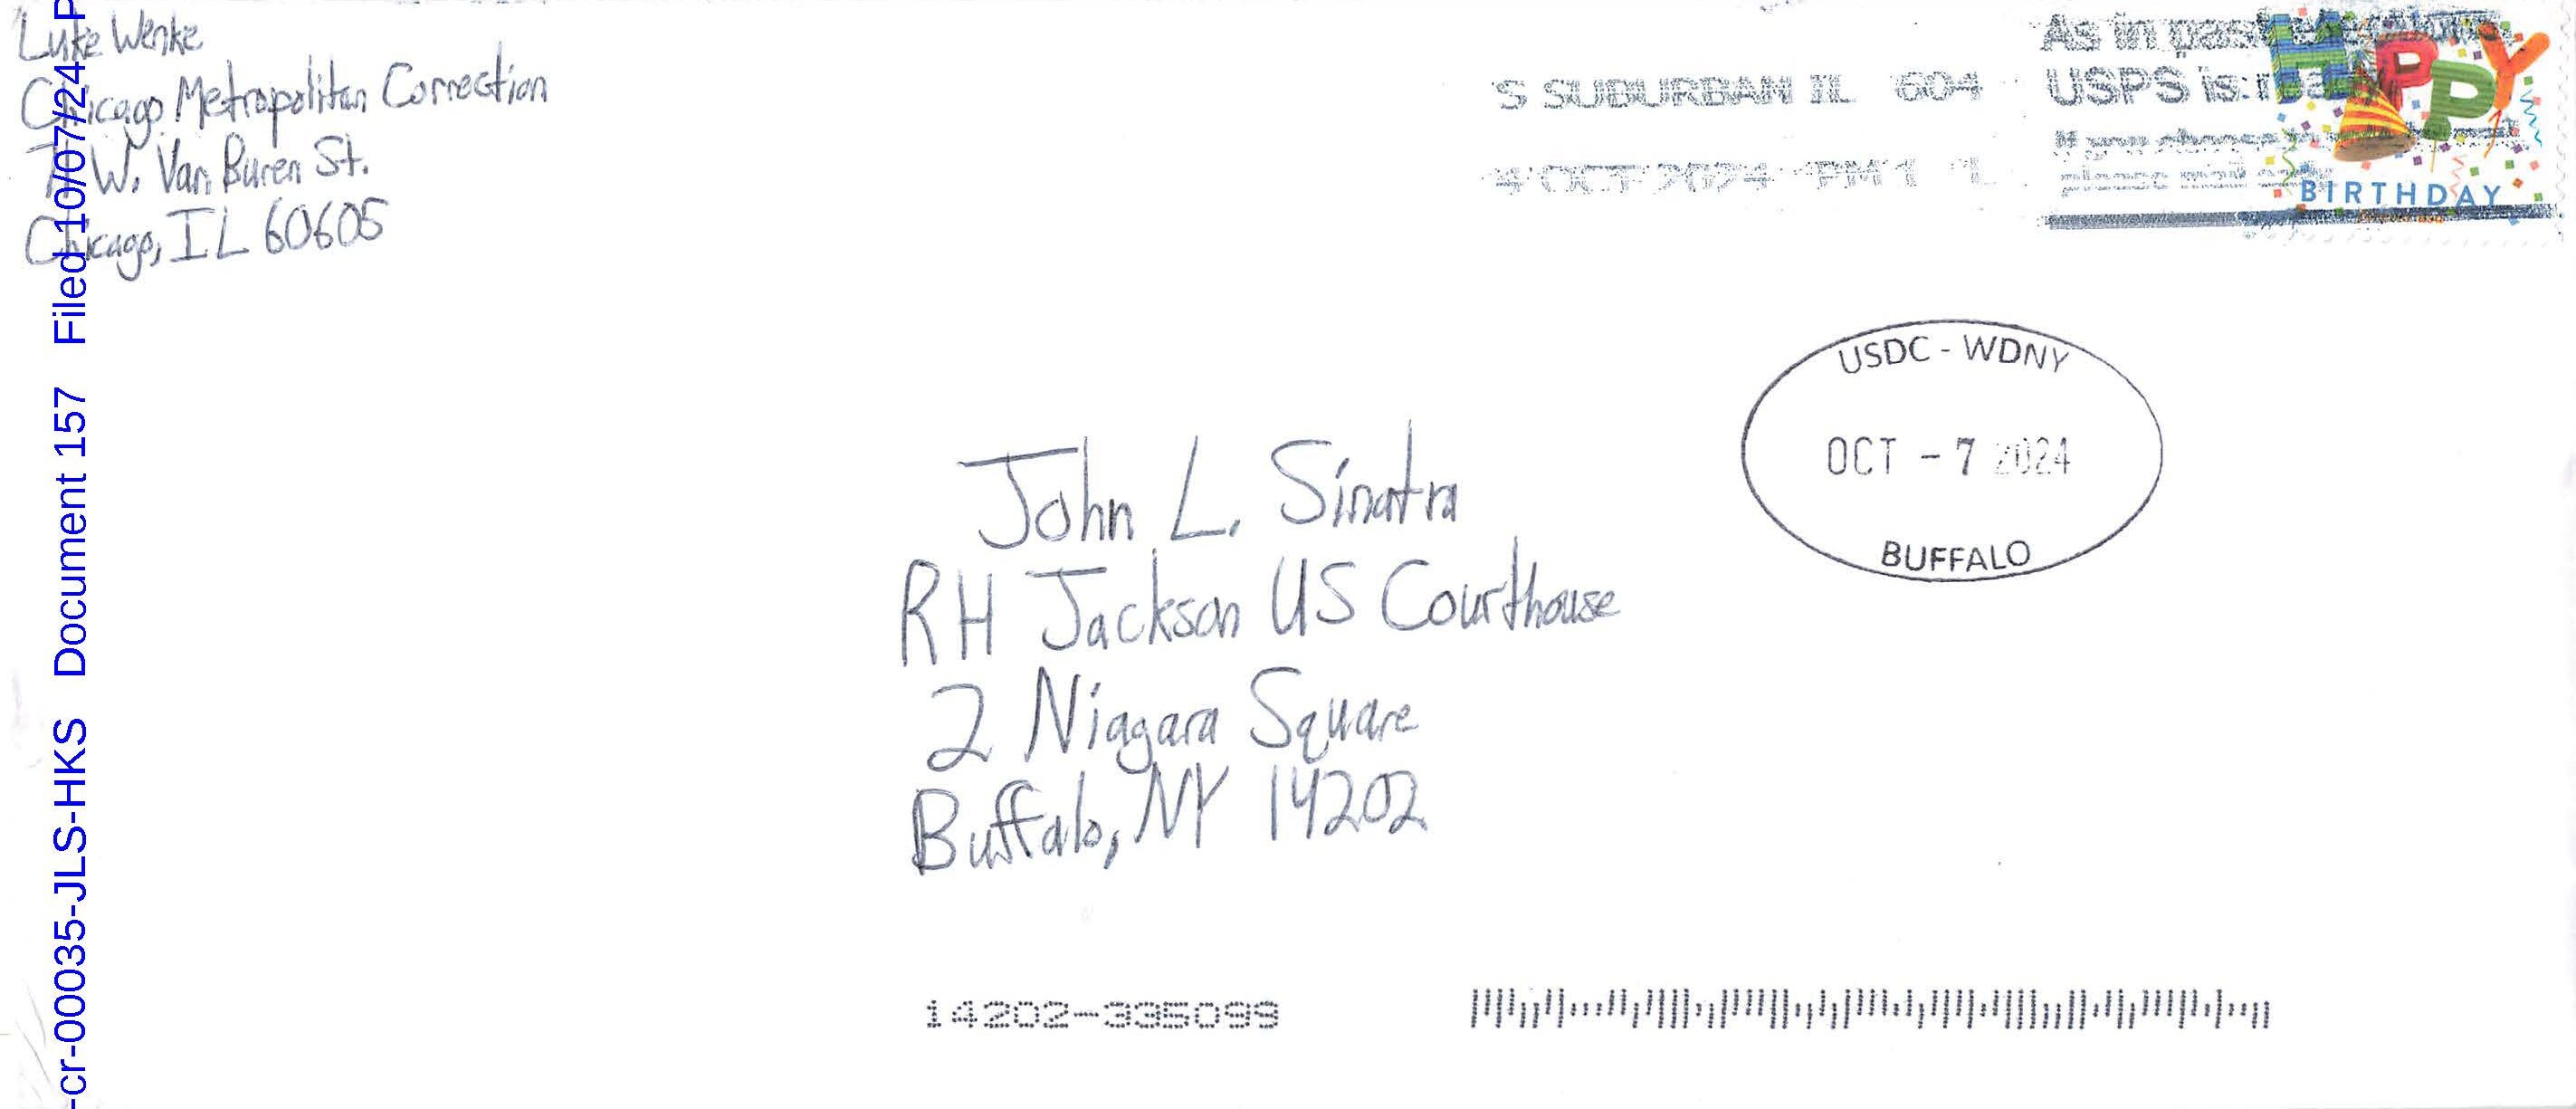 Luke Wenke
Chicago Metropolitan Correction
71 W. Van Buren St.
Chicago, IL 60605
-cr-00035-JLS-HKS Document 157 Filed 10/07/24 P
S SUBURBAN IL 604
4 OCT 2024 PM 1 L
As in past
USPS is
If you choose
please mail early
HAPPY
BIRTHDAY
USDC - WDNY
OCT - 7 2024
BUFFALO
John L. Sinatra
RH Jackson US Courthouse
2 Niagara Square
Buffalo, NY 14202
14202-335099